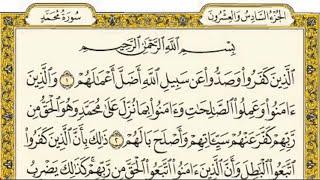 الجزء السادس والعشرون
سورة محمد
بِسْمِ اللَّهِ الرَّحْمَٰنِ الرَّحِيمِ
الَّذِينَ كَفَرُوا وَصَدُّوا عَن سَبِيلِ اللَّهِ أَضَلَّ أَعْمَالَهُمْ ١ وَالَّذِينَ
ءَامَنُوا وَعَمِلُوا الصَّالِحَاتِ وَءَامَنُوا بِمَا نُزِّلَ عَلَىٰ مُحَمَّدٍ وَهُوَ الْحَقُّ مِن
رَّبِّهِمْ كَفَّرَ عَنْهُمْ سَيِّئَاتِهِمْ وَأَصْلَحَ بَالَهُمْ ٢ ذَٰلِكَ بِأَنَّ الَّذِينَ كَفَرُوا
اتَّبَعُوا الْبَاطِلَ وَأَنَّ الَّذِينَ ءَامَنُوا اتَّبَعُوا الْحَقَّ مِن رَّبِّهِمْ كَذَٰلِكَ يَضْرِبُ